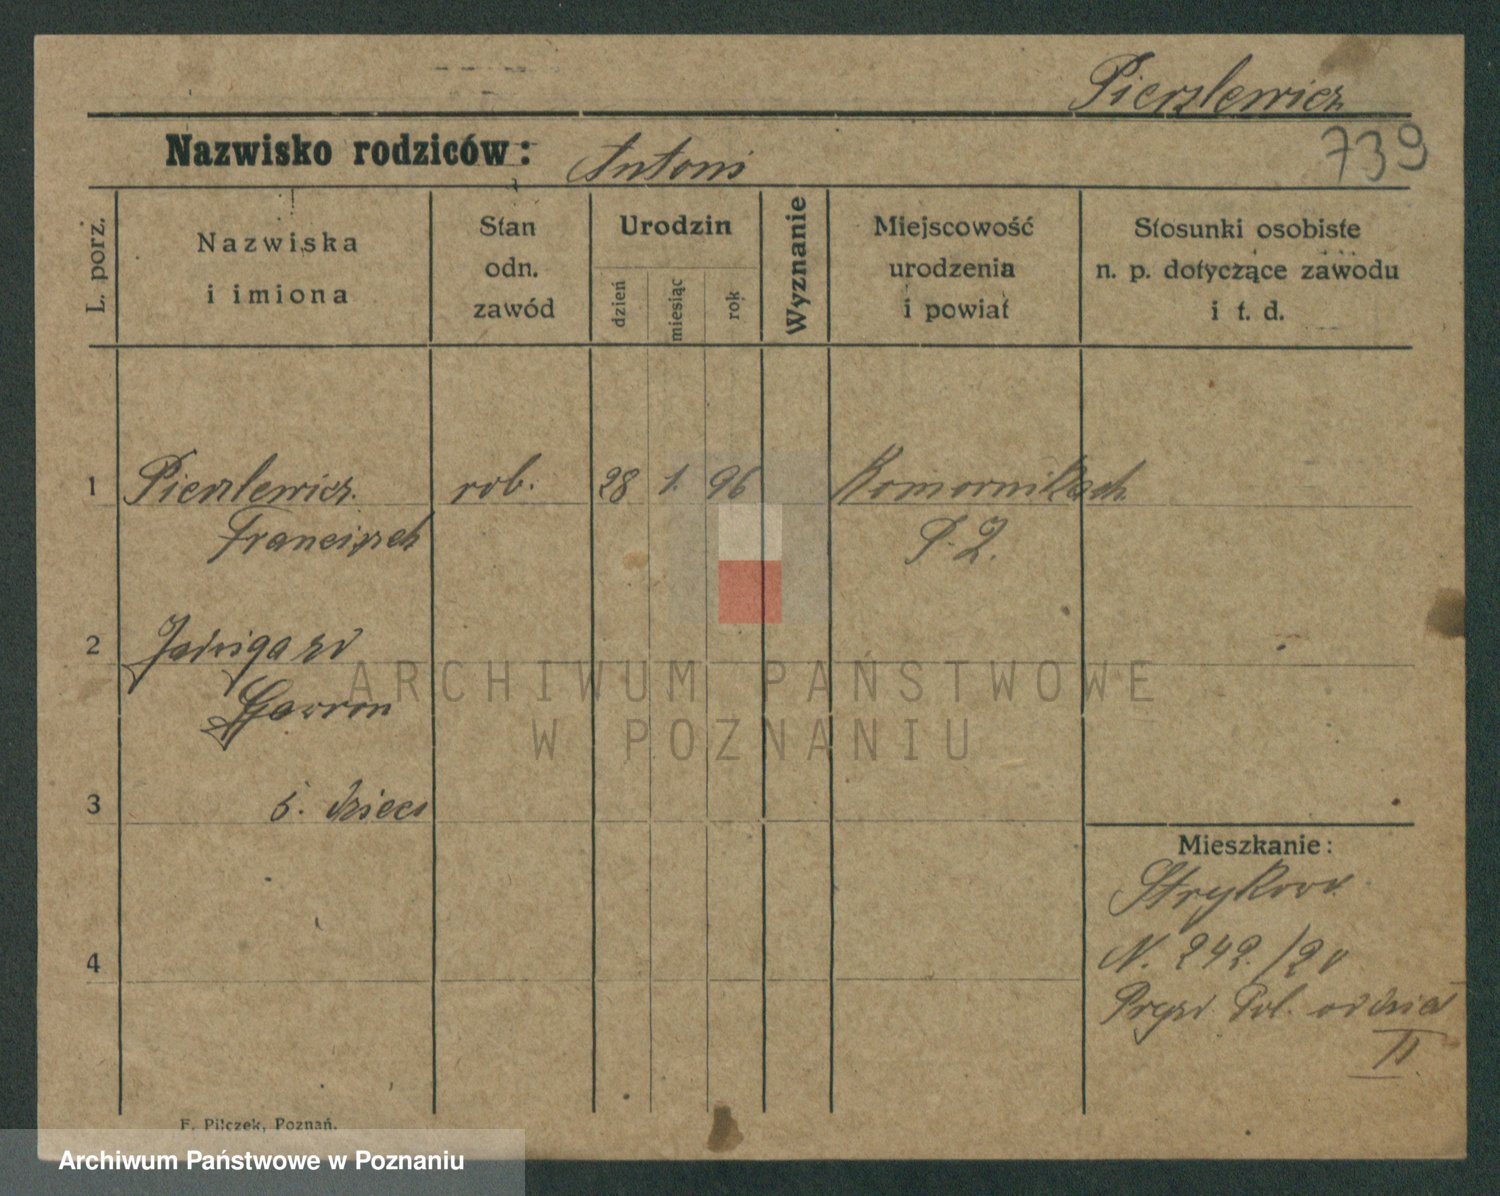 Pierzlewicz
Nazwisko rodziców: Antoni
739
L. porz.
Nazwiska
i imiona
Stan
odn.
zawód
Urodzin
dzień
miesiąc
rok
Wyznanie
Miejscowość
urodzenia
i powiat
Stosunki osobiste
n. p. dotyczące zawodu
i t. d.
1 Pierzlewicz rob. 28 1. 96 Komornikach
Franciszek
2 Jadwiga zd
Gawron
3 5. dzieci
4
Mieszkanie:
Strykow.
N. 242./20
Prezd Pol. oddział
II
F. Pilczek, Poznań.
ARCHIWUM PAŃSTWOWE
W POZNANIU
Archiwum Państwowe w Poznaniu